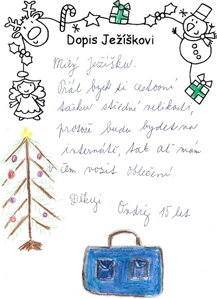 Dopis Ježíškovi
Milý Ježíšku.
Přál bych si cestovní
tašku střední velikosti,
protože budu bydlet na
internátě, tak ať mám
v čem vozit oblečení
Děkuji Ondřej 15 let